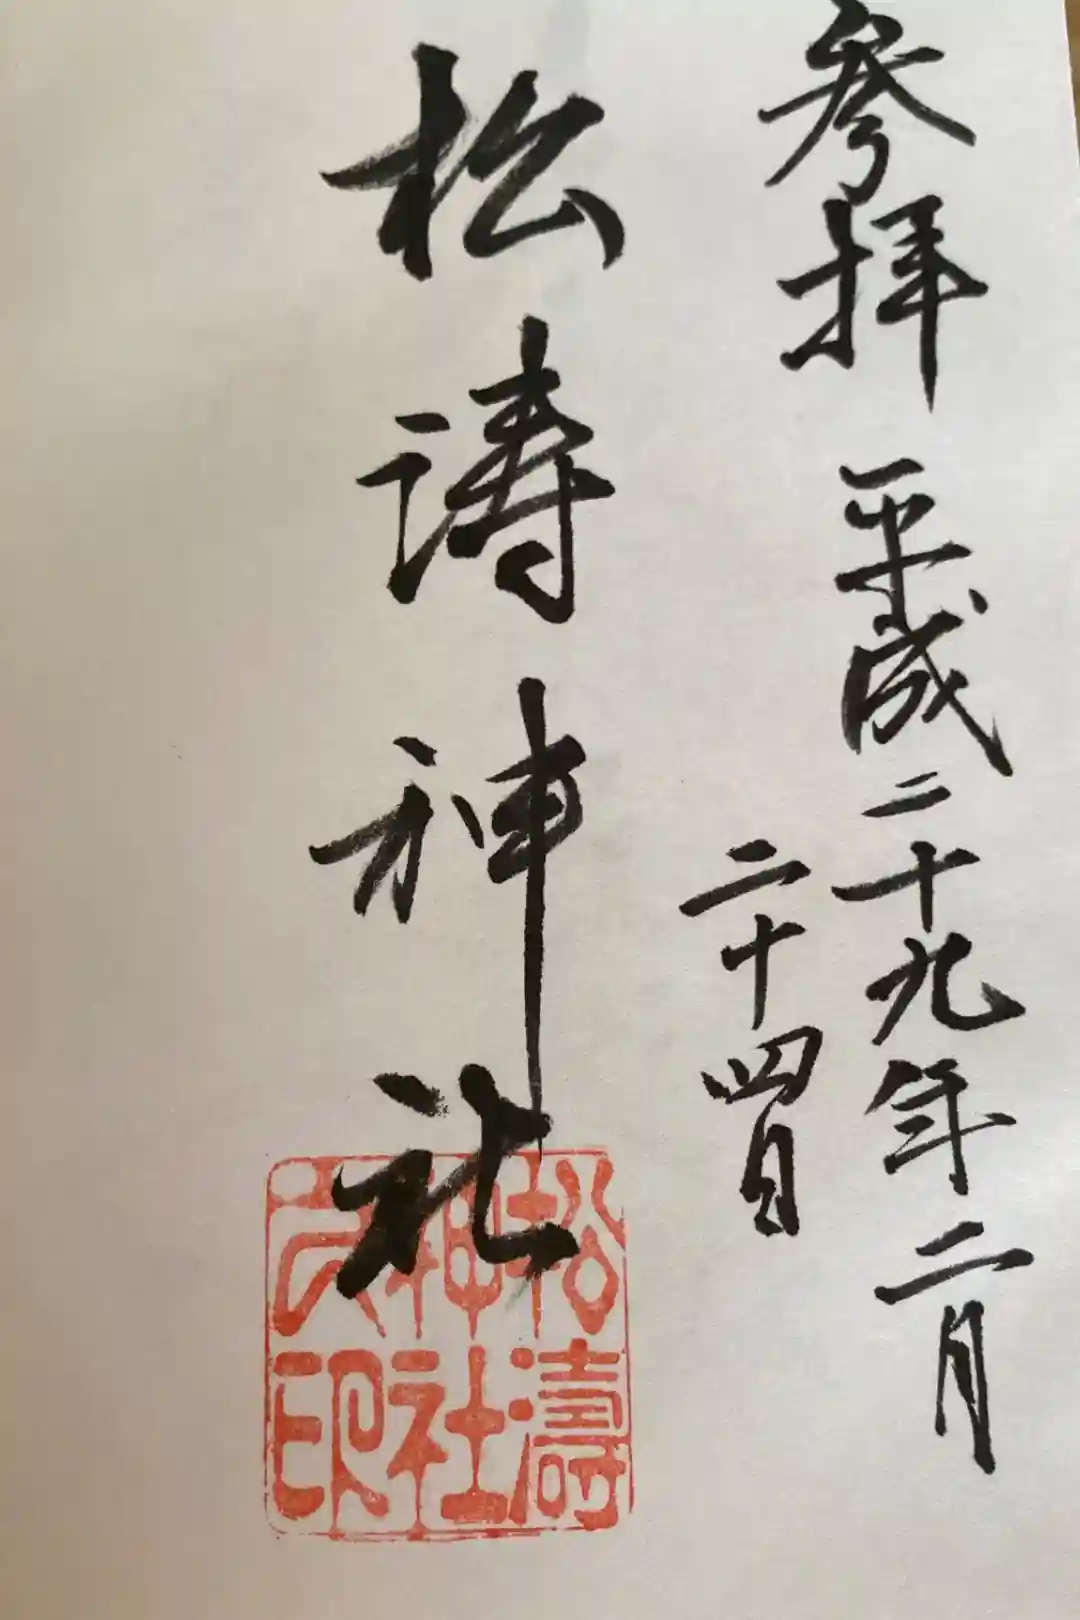 参拝 平成二十九年二月
二十四日
松濤神社
松濤
神社
之印